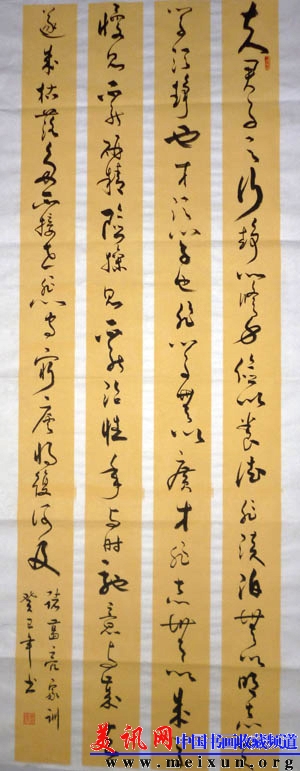 夫君子之行静以修身俭以养德非淡泊無以明志
学须静也才须学也非学無以广才非志無以成
慢则不能研精险躁则不能治性年与时驰意与歲去
遂成枯落多不接世悲守窮廬将復何及
諸葛亮家训
癸巳年书
美讯网 中国书画收藏频道
http://www.meixun.org